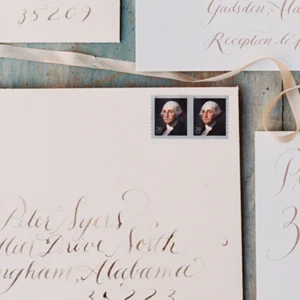 35209
Gadsden, Ala
Reception to
20 20
Peter Syers
Drive North
ingham, Alabama
35223
B
3